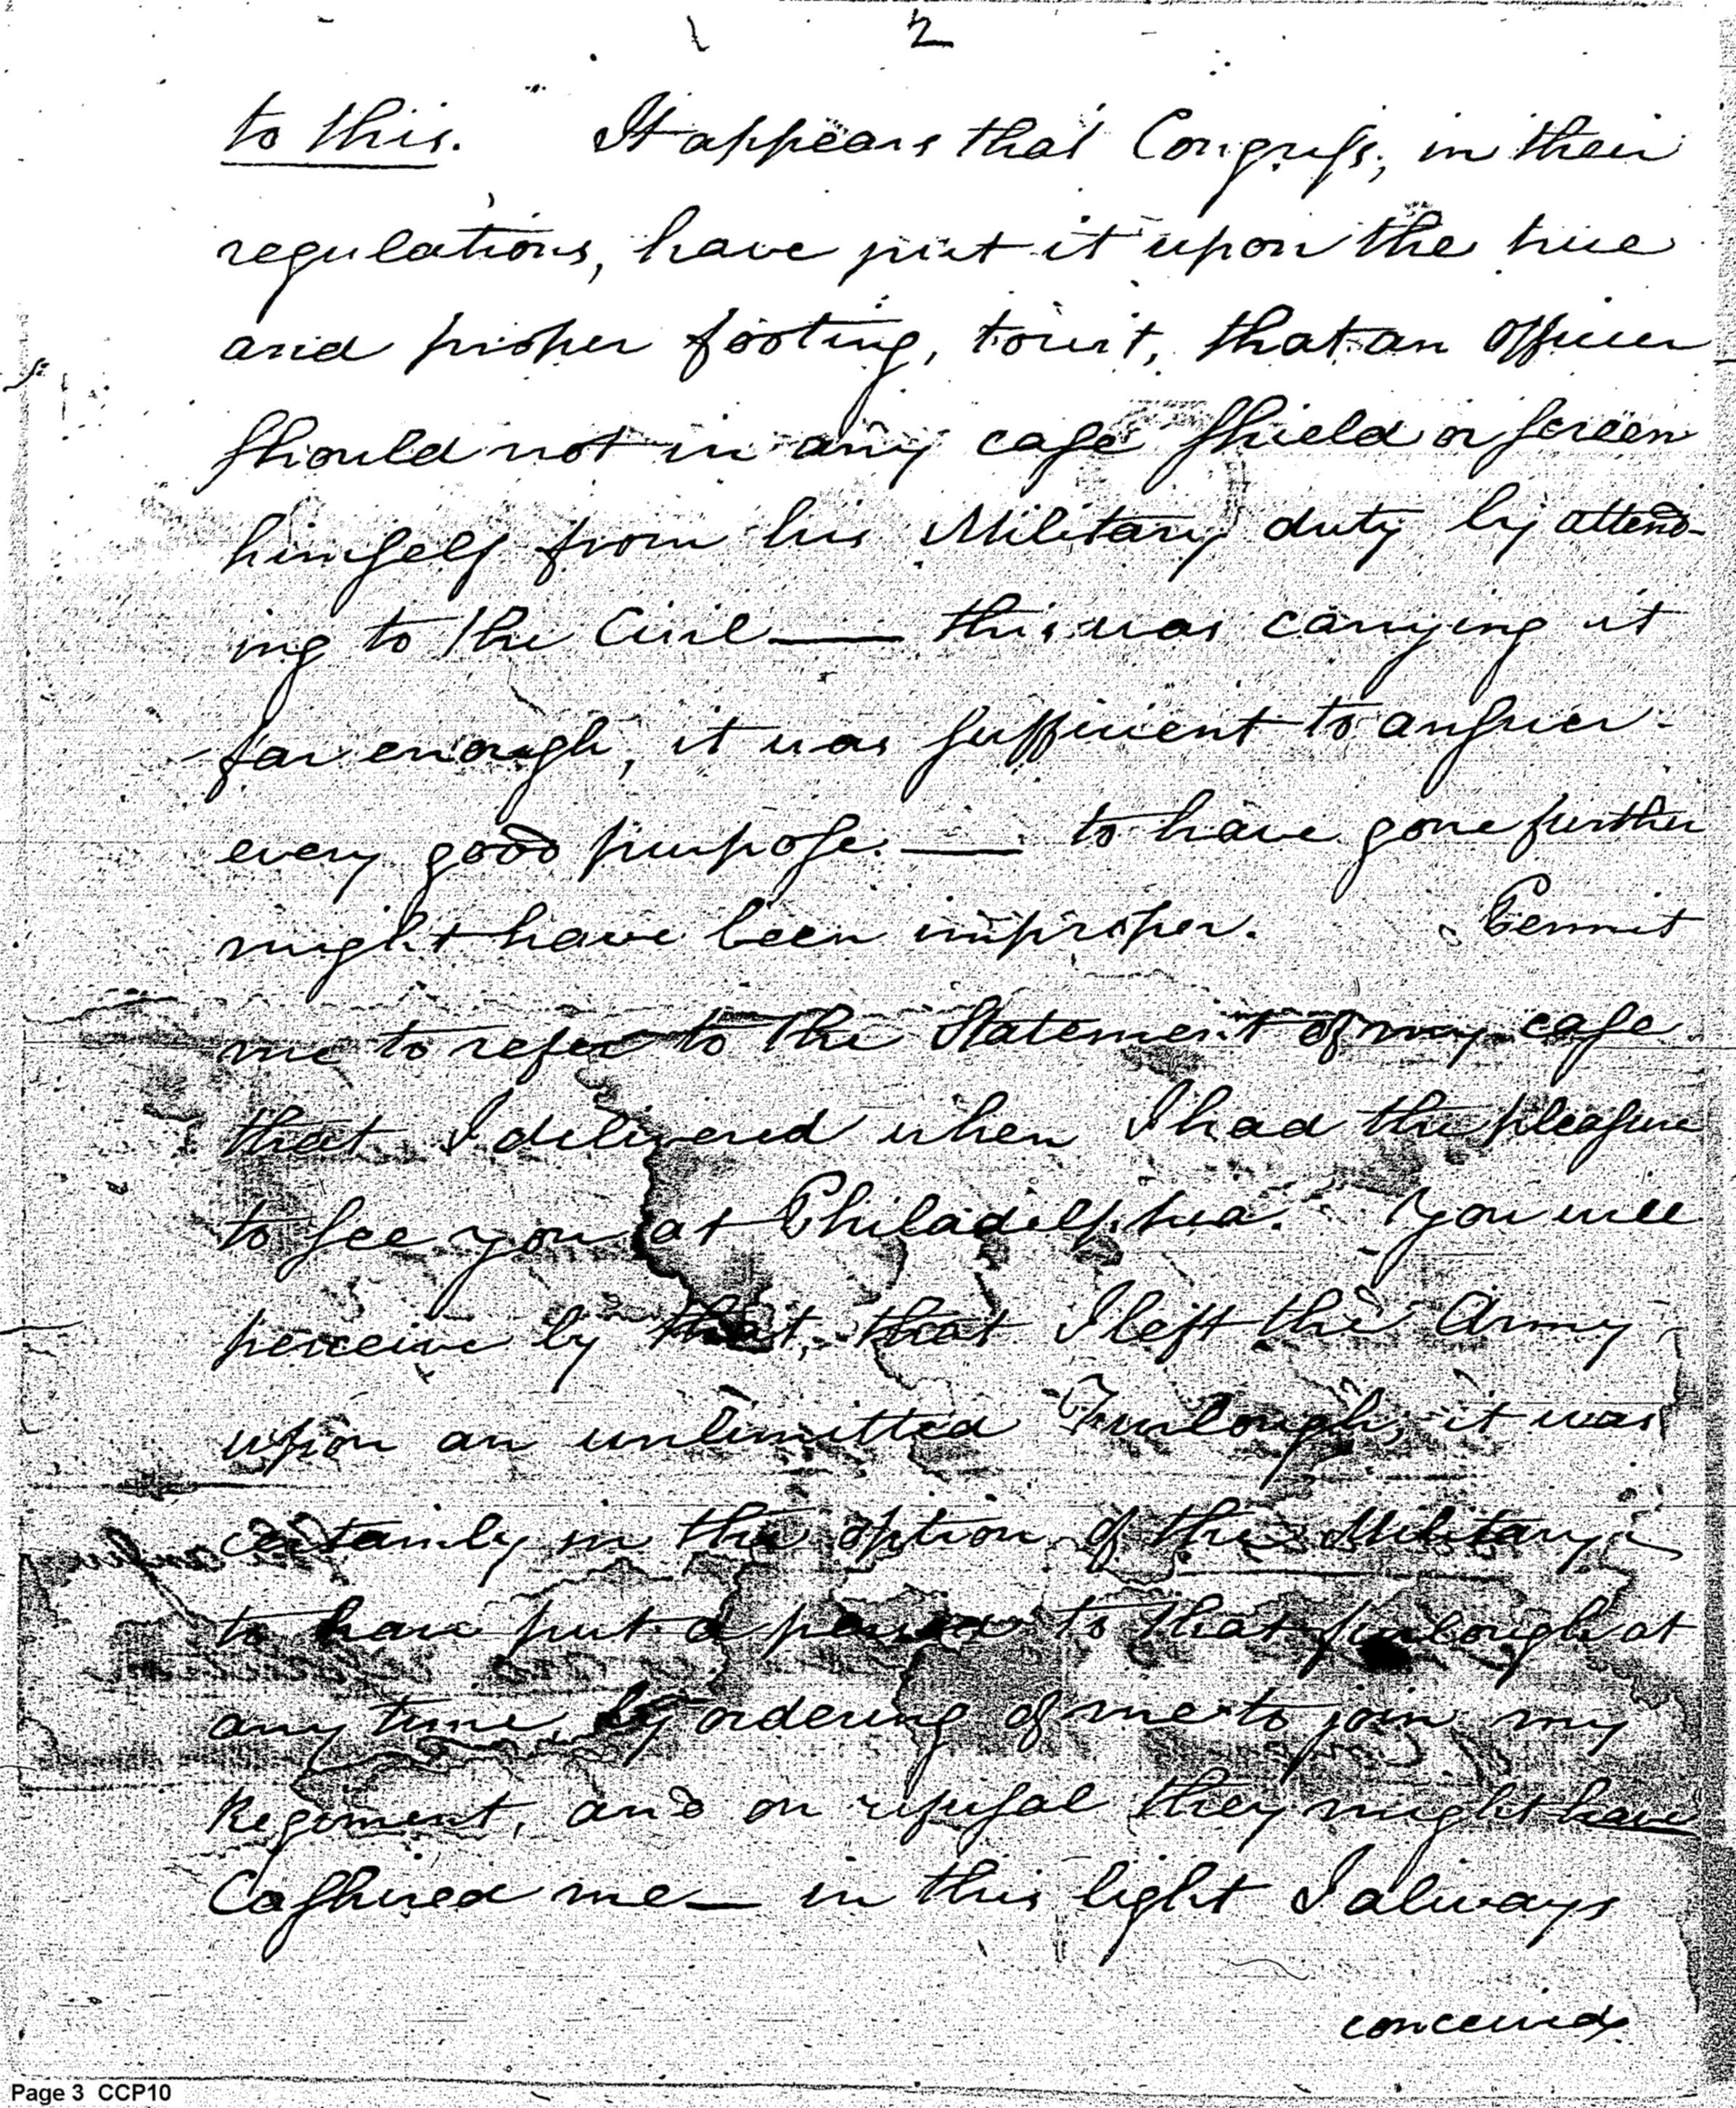 2
to this. It appears that Congreſs, in their
regulations, have put it upon the true
and proper footing, towit, that an officer
ſhould not in any caſe ſhield or ſcreen
himſelf from his Military duty by attend-
ing to the Civil — this was carrying it
far enough, it was ſufficient to anſwer
every good purpoſe. — to have gone further
might have been improper. Permit
me to refer to the Statement of my caſe
that I delivered when I had the pleaſure
to ſee you at Philadelphia. You will
perceive by that, that I left the Army
upon an unlimitted Furlough, it was
certainly in the option of the Military
to have put a period to that furlough at
any time, by ordering of me to join my
Regiment, and on refuſal they might have
Caſhired me — in this light I always
conceived
Page 3 CCP10